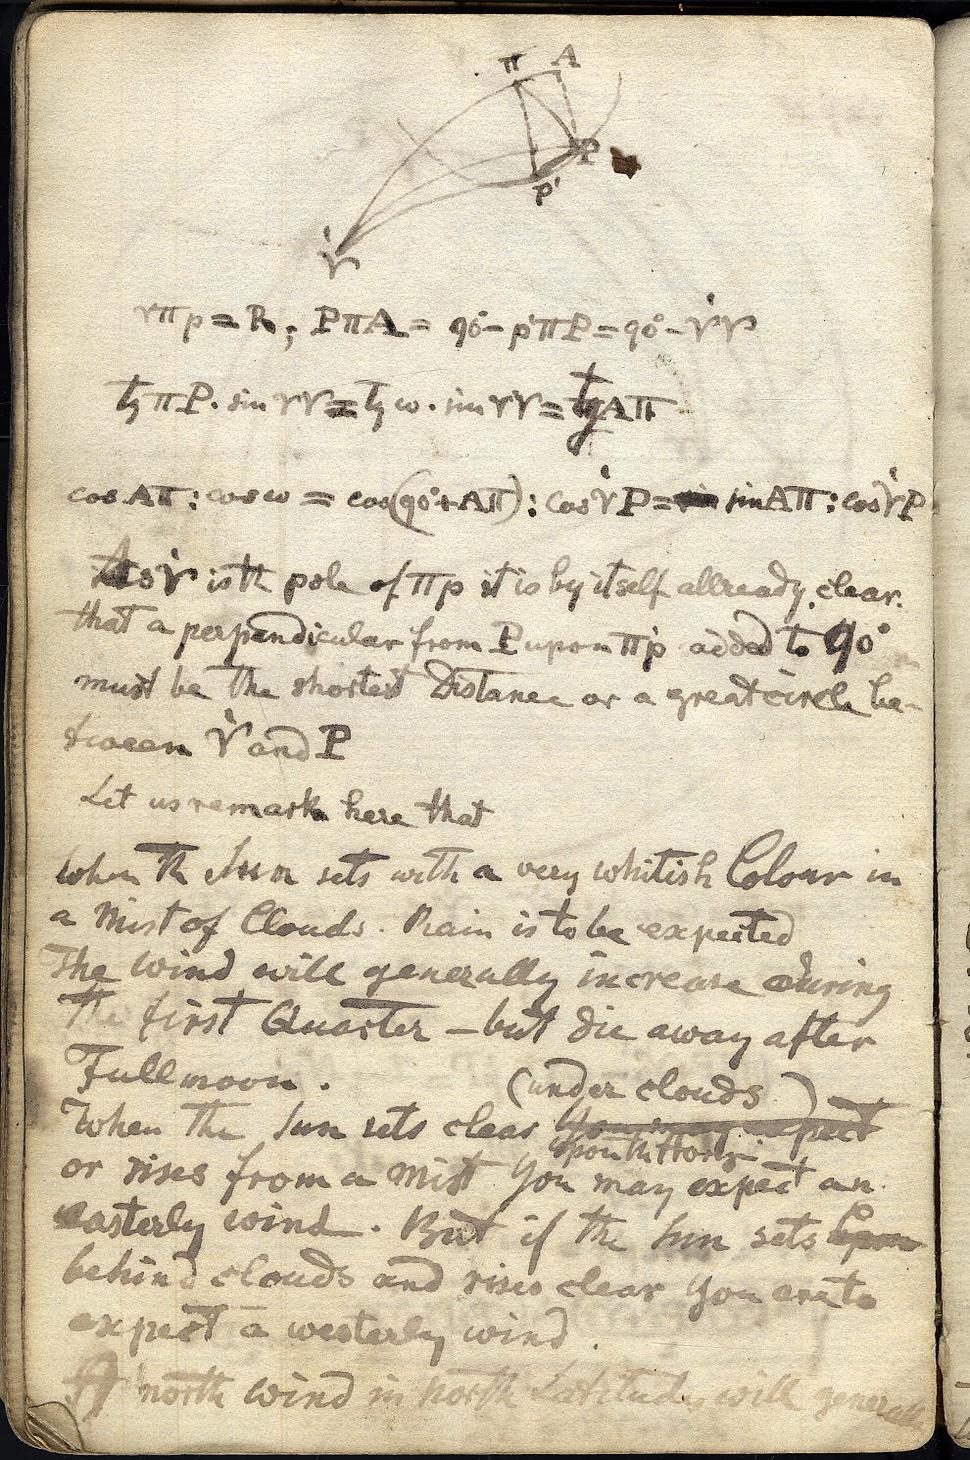 π A
P
p'
γ̇
γπp = R; PπA = 90° - p'πP = 90° - γ̇γ
tg πP. sin γγ = tg ω. sin γγ = tg Aπ
cos Aπ : cos ω = cos (90° + Aπ) : cos γ̇P = sin Aπ : cos γ̇P
As γ̇ is th pole of πp it is by itself allready clear.
that a perpendicular from P upon πp added to 90°
must be the shortest Distance or a great circle be-
tween γ̇ and P
Let us remark here that
when Th Sun sets with a very whitish Colour in
a Mist of Clouds. Rain is to be expected
The wind will generally increase during
The first Quarter - but die away after
Fullmoon.
(under clouds)
When the Sun sets clear You may expect
upon th Horiz.
or rises from a Mist You may expect an
easterly wind. But if the Sun sets upon
behind clouds and rises clear You are to
expect a westerly wind.
A north wind in North Latitudes will generall